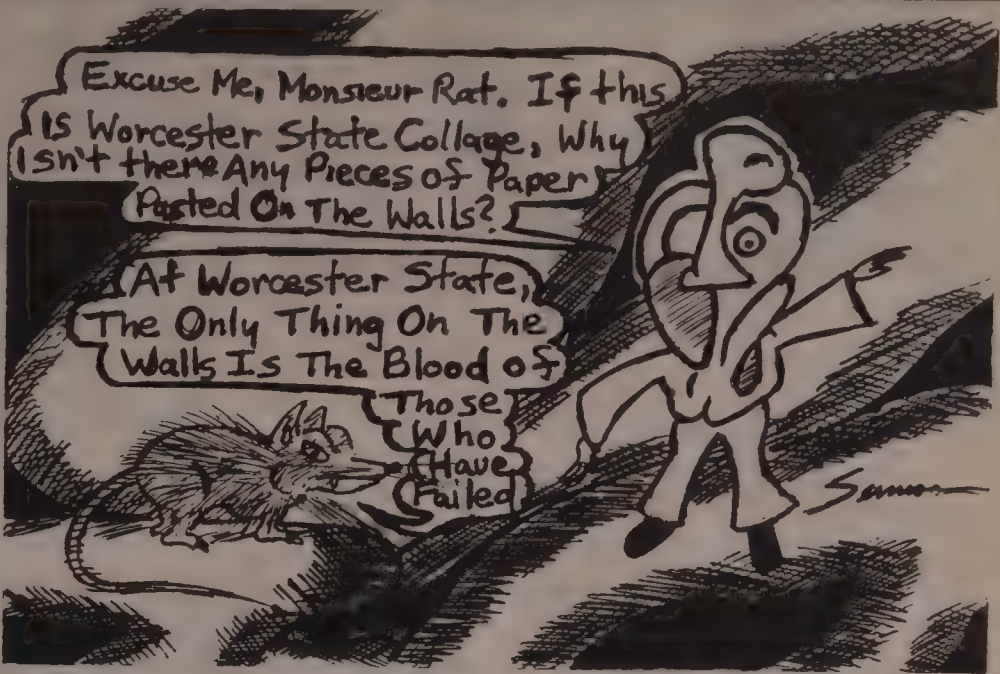 Excuse Me, Monsieur Rat. If this
Is Worcester State Collage, Why
Isn't there Any Pieces of Paper
Pasted On The Walls?
At Worcester State,
The Only Thing On The
Walls Is The Blood of
Those
Who
Have
Failed